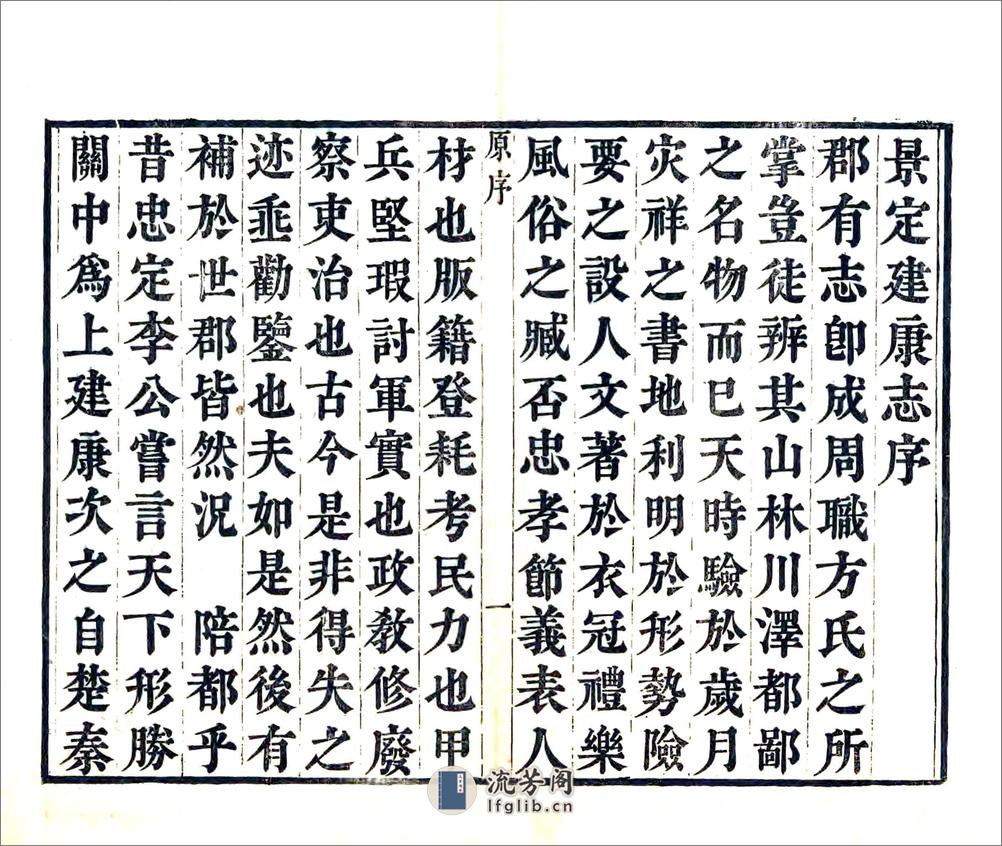 景定建康志序
郡有志卽成周職方氏之所
掌豈徒辨其山林川澤都鄙
之名物而已天時驗於歲月
灾祥之書地利明於形勢險
要之設人文著於衣冠禮樂
風俗之臧否忠孝節義表人
原序
一
材也版籍登耗考民力也甲
兵堅瑕討軍實也政敎修廢
察吏治也古今是非得失之
迹垂勸鑒也夫如是然後有
補於世郡皆然況　陪都乎
昔忠定李公嘗言天下形勝
關中爲上建康次之自楚秦
流芳阁
lfglib.cn